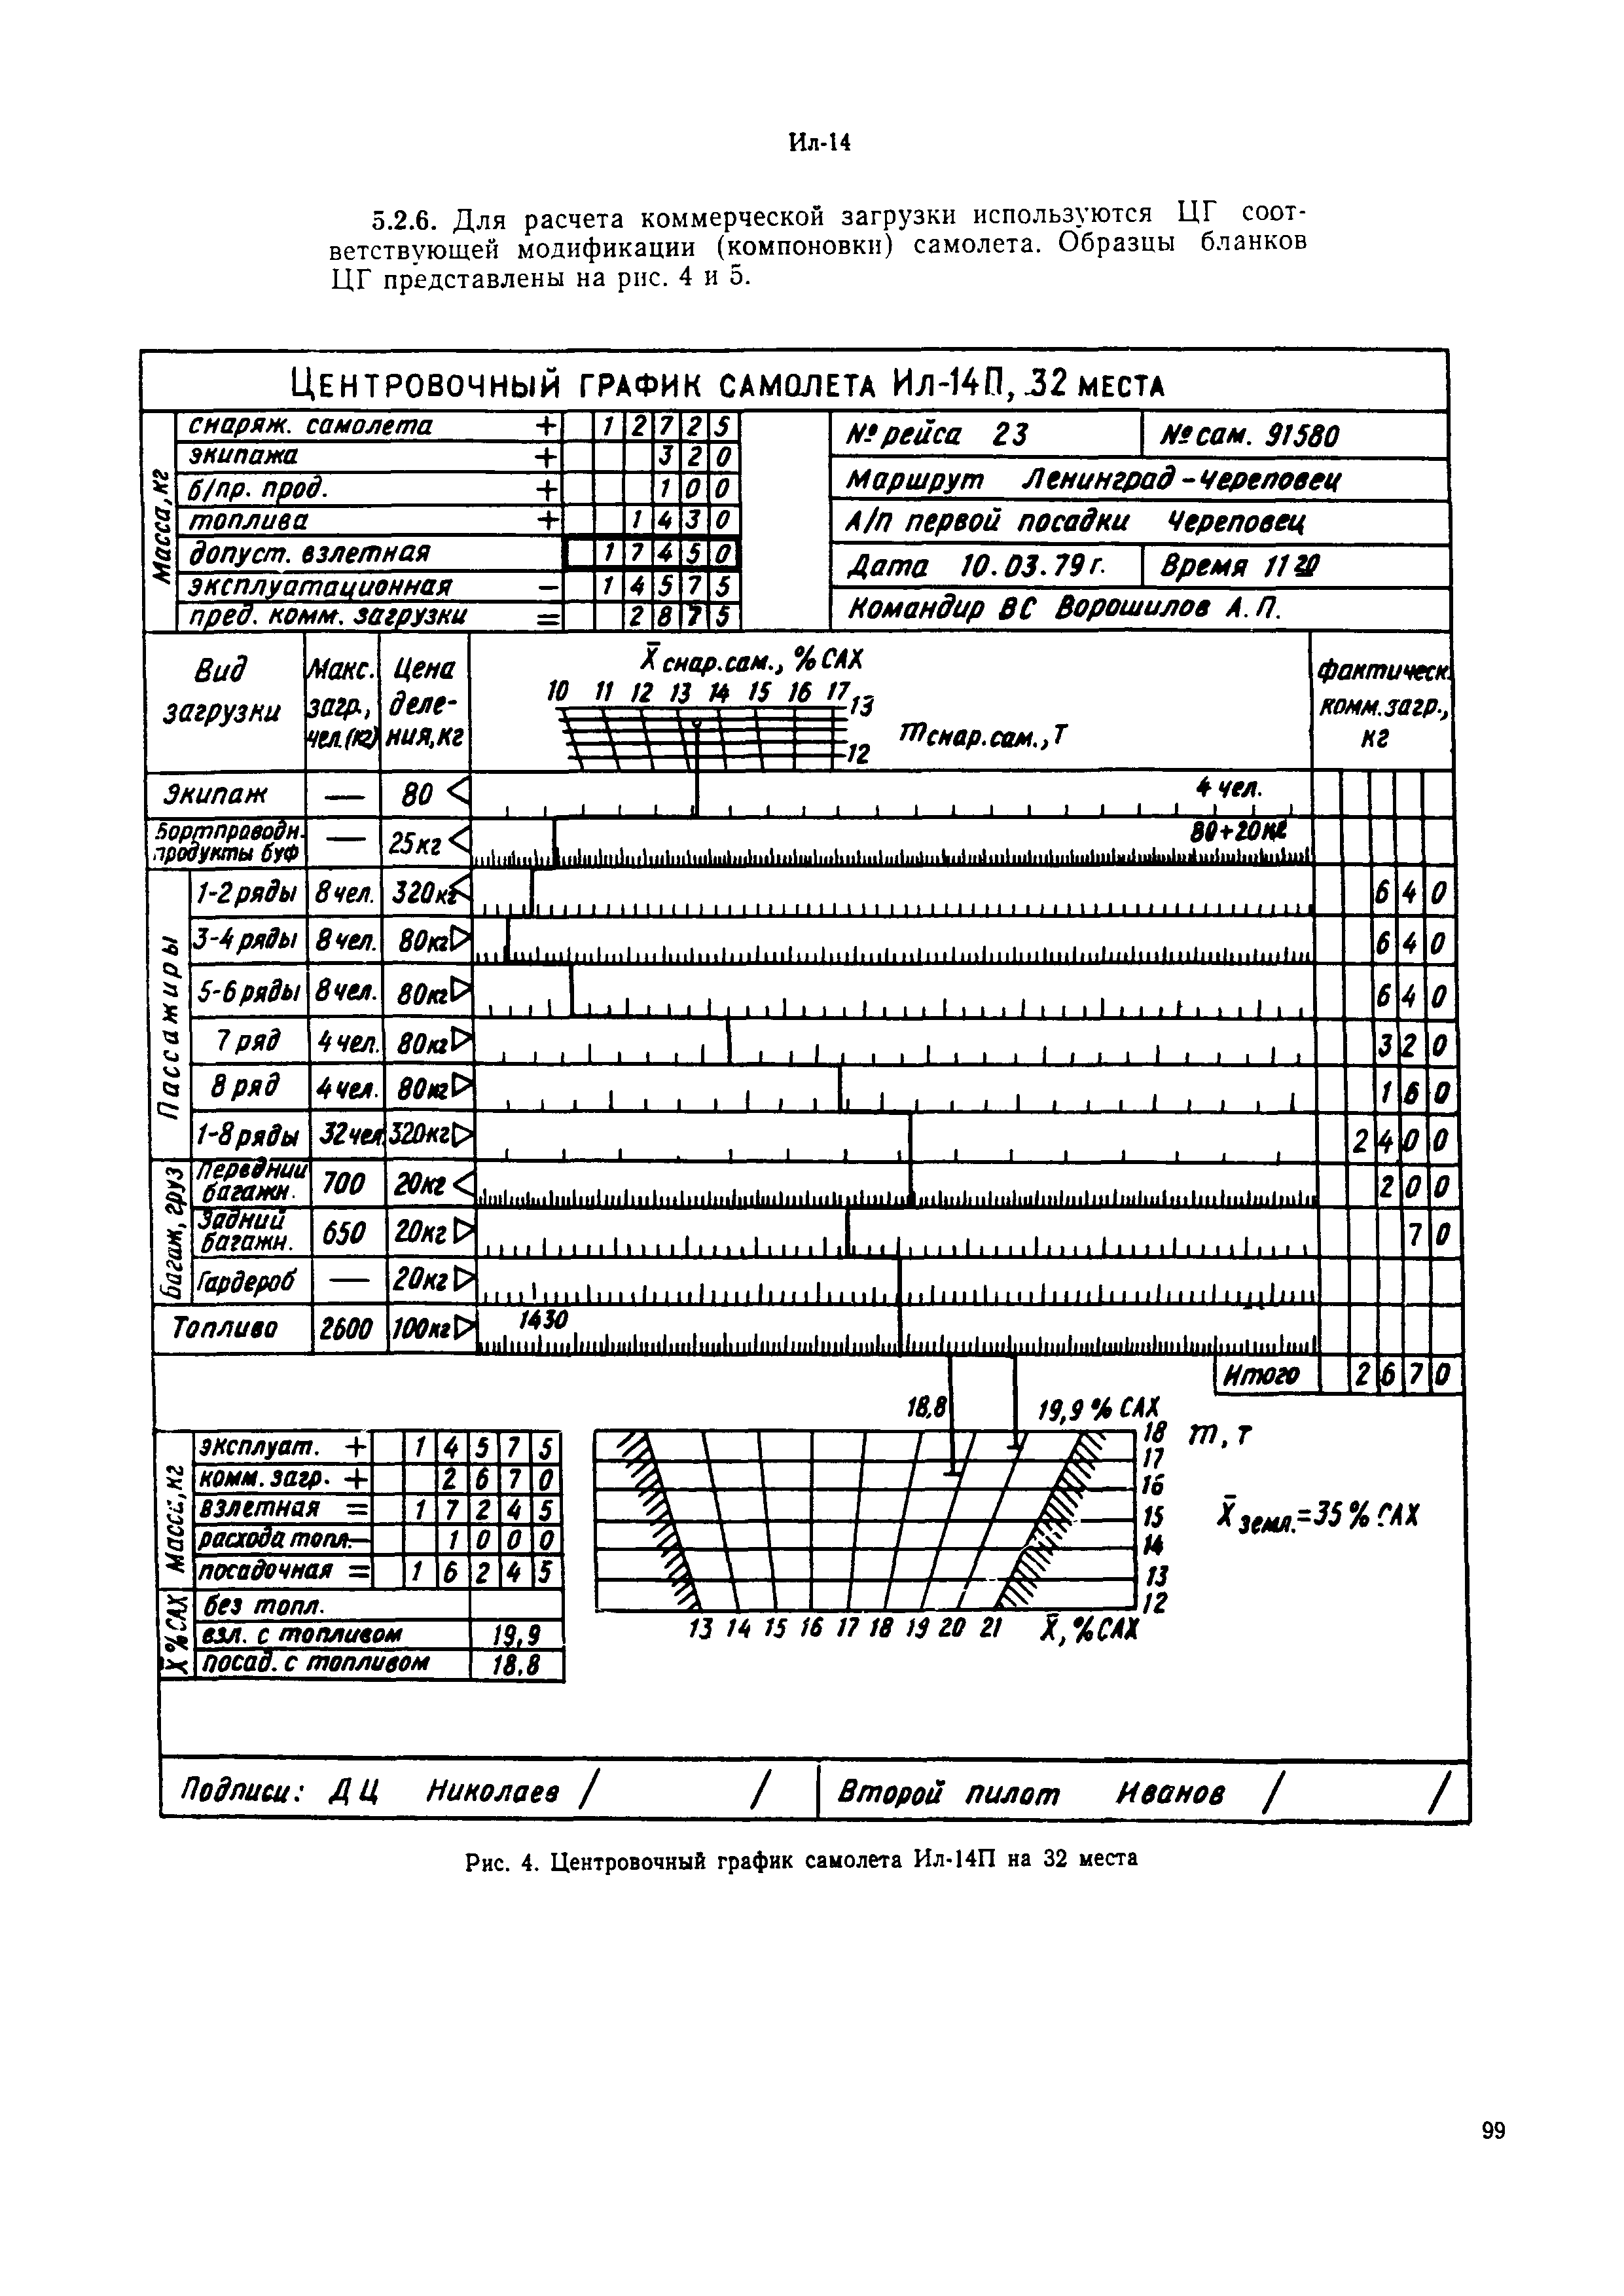 Ил-14
5.2.6. Для расчета коммерческой загрузки используются ЦГ соот-
ветствующей модификации (компоновки) самолета. Образцы бланков
ЦГ представлены на рис. 4 и 5.
ЦЕНТРОВОЧНЫЙ ГРАФИК САМОЛЕТА ИЛ-14П, 32 МЕСТА
Масса, кг
снаряж. самолета + 12725
экипажа + 320
б/пр. прод. + 100
топлива + 1430
допуст. взлетная 17450
эксплуатационная − 14575
пред. комм. загрузки = 2875
№ рейса 23 № сам. 91580
Маршрут Ленинград-Череповец
А/п первой посадки Череповец
Дата 10.03.79 г. Время 11 20
Командир ВС Ворошилов А.П.
Вид загрузки
Макс. загр., чел.(кг)
Цена деления, кг
X̄ снар.сам., % САХ
10 11 12 13 14 15 16 17
13
12
m снар.сам., Т
фактическ. комм.загр., кг
Экипаж — 80 4 чел.
Бортпроводн. продукты буф — 25кг 80+20кг
Пассажиры
1-2 ряды 8 чел. 320кг 640
3-4 ряды 8 чел. 80кг 640
5-6 ряды 8 чел. 80кг 640
7 ряд 4 чел. 80кг 320
8 ряд 4 чел. 80кг 160
1-8 ряды 32 чел. 320кг 2400
Багаж, груз
Передний багажн. 700 20кг 200
Задний багажн. 650 20кг 70
Гардероб — 20кг
Топливо 2600 100кг 1430
Итого 2670
18,8 19,9 % САХ
Масса, кг
эксплуат. + 14575
комм. загр. + 2670
взлетная = 17245
расхода топл. − 1000
посадочная = 16245
X̄ % САХ
без топл.
взл. с топливом 19,9
посад. с топливом 18,8
18 m, т
17
16
15
14
13
12
13 14 15 16 17 18 19 20 21 X̄, % САХ
X̄ земл.=35 % САХ
Подписи: ДЦ Николаев / / Второй пилот Иванов / /
Рис. 4. Центровочный график самолета Ил-14П на 32 места
99